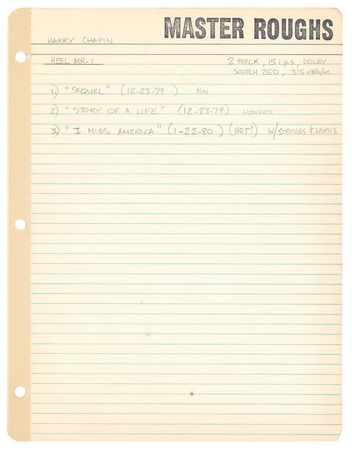 MASTER ROUGHS
HARRY CHAPIN
REEL MR-1
2 TRACK, 15 i.p.s., DOLBY
SCOTCH 250,
1) "SEQUEL" (12-23-79)
2) "STORY OF A LIFE" (12-23-79) HOWARD
3) "I MISS AMERICA" (1-22-80) (HOT!) W/STRINGS & HORNS